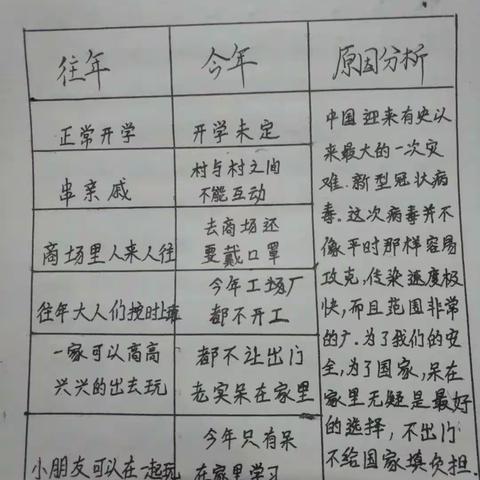 往年
今年
原因分析
正常开学
开学未定
串亲戚
村与村之间
不能互动
商场里人来人往
去商场还
要戴口罩
往年大人们按时上班
今年工场厂
都不开工
一家可以高高
兴兴的出去玩
都不让出门
老实呆在家里
小朋友可以在一起玩
今年只有呆
在家里学习
中国迎来有史以
来最大的一次灾
难.新型冠状病
毒。这次病毒并不
像平时那样容易
攻克,传染速度极
快,而且范围非常
的广。为了我们的安
全,为了国家,呆在
家里无疑是最好
的选择,不出门
不给国家填负担.